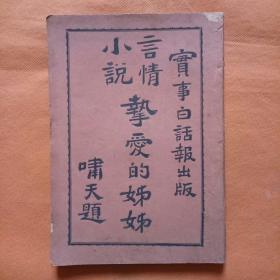 實事白話報出版
言情小說
摯愛的姊姊
嘯天題